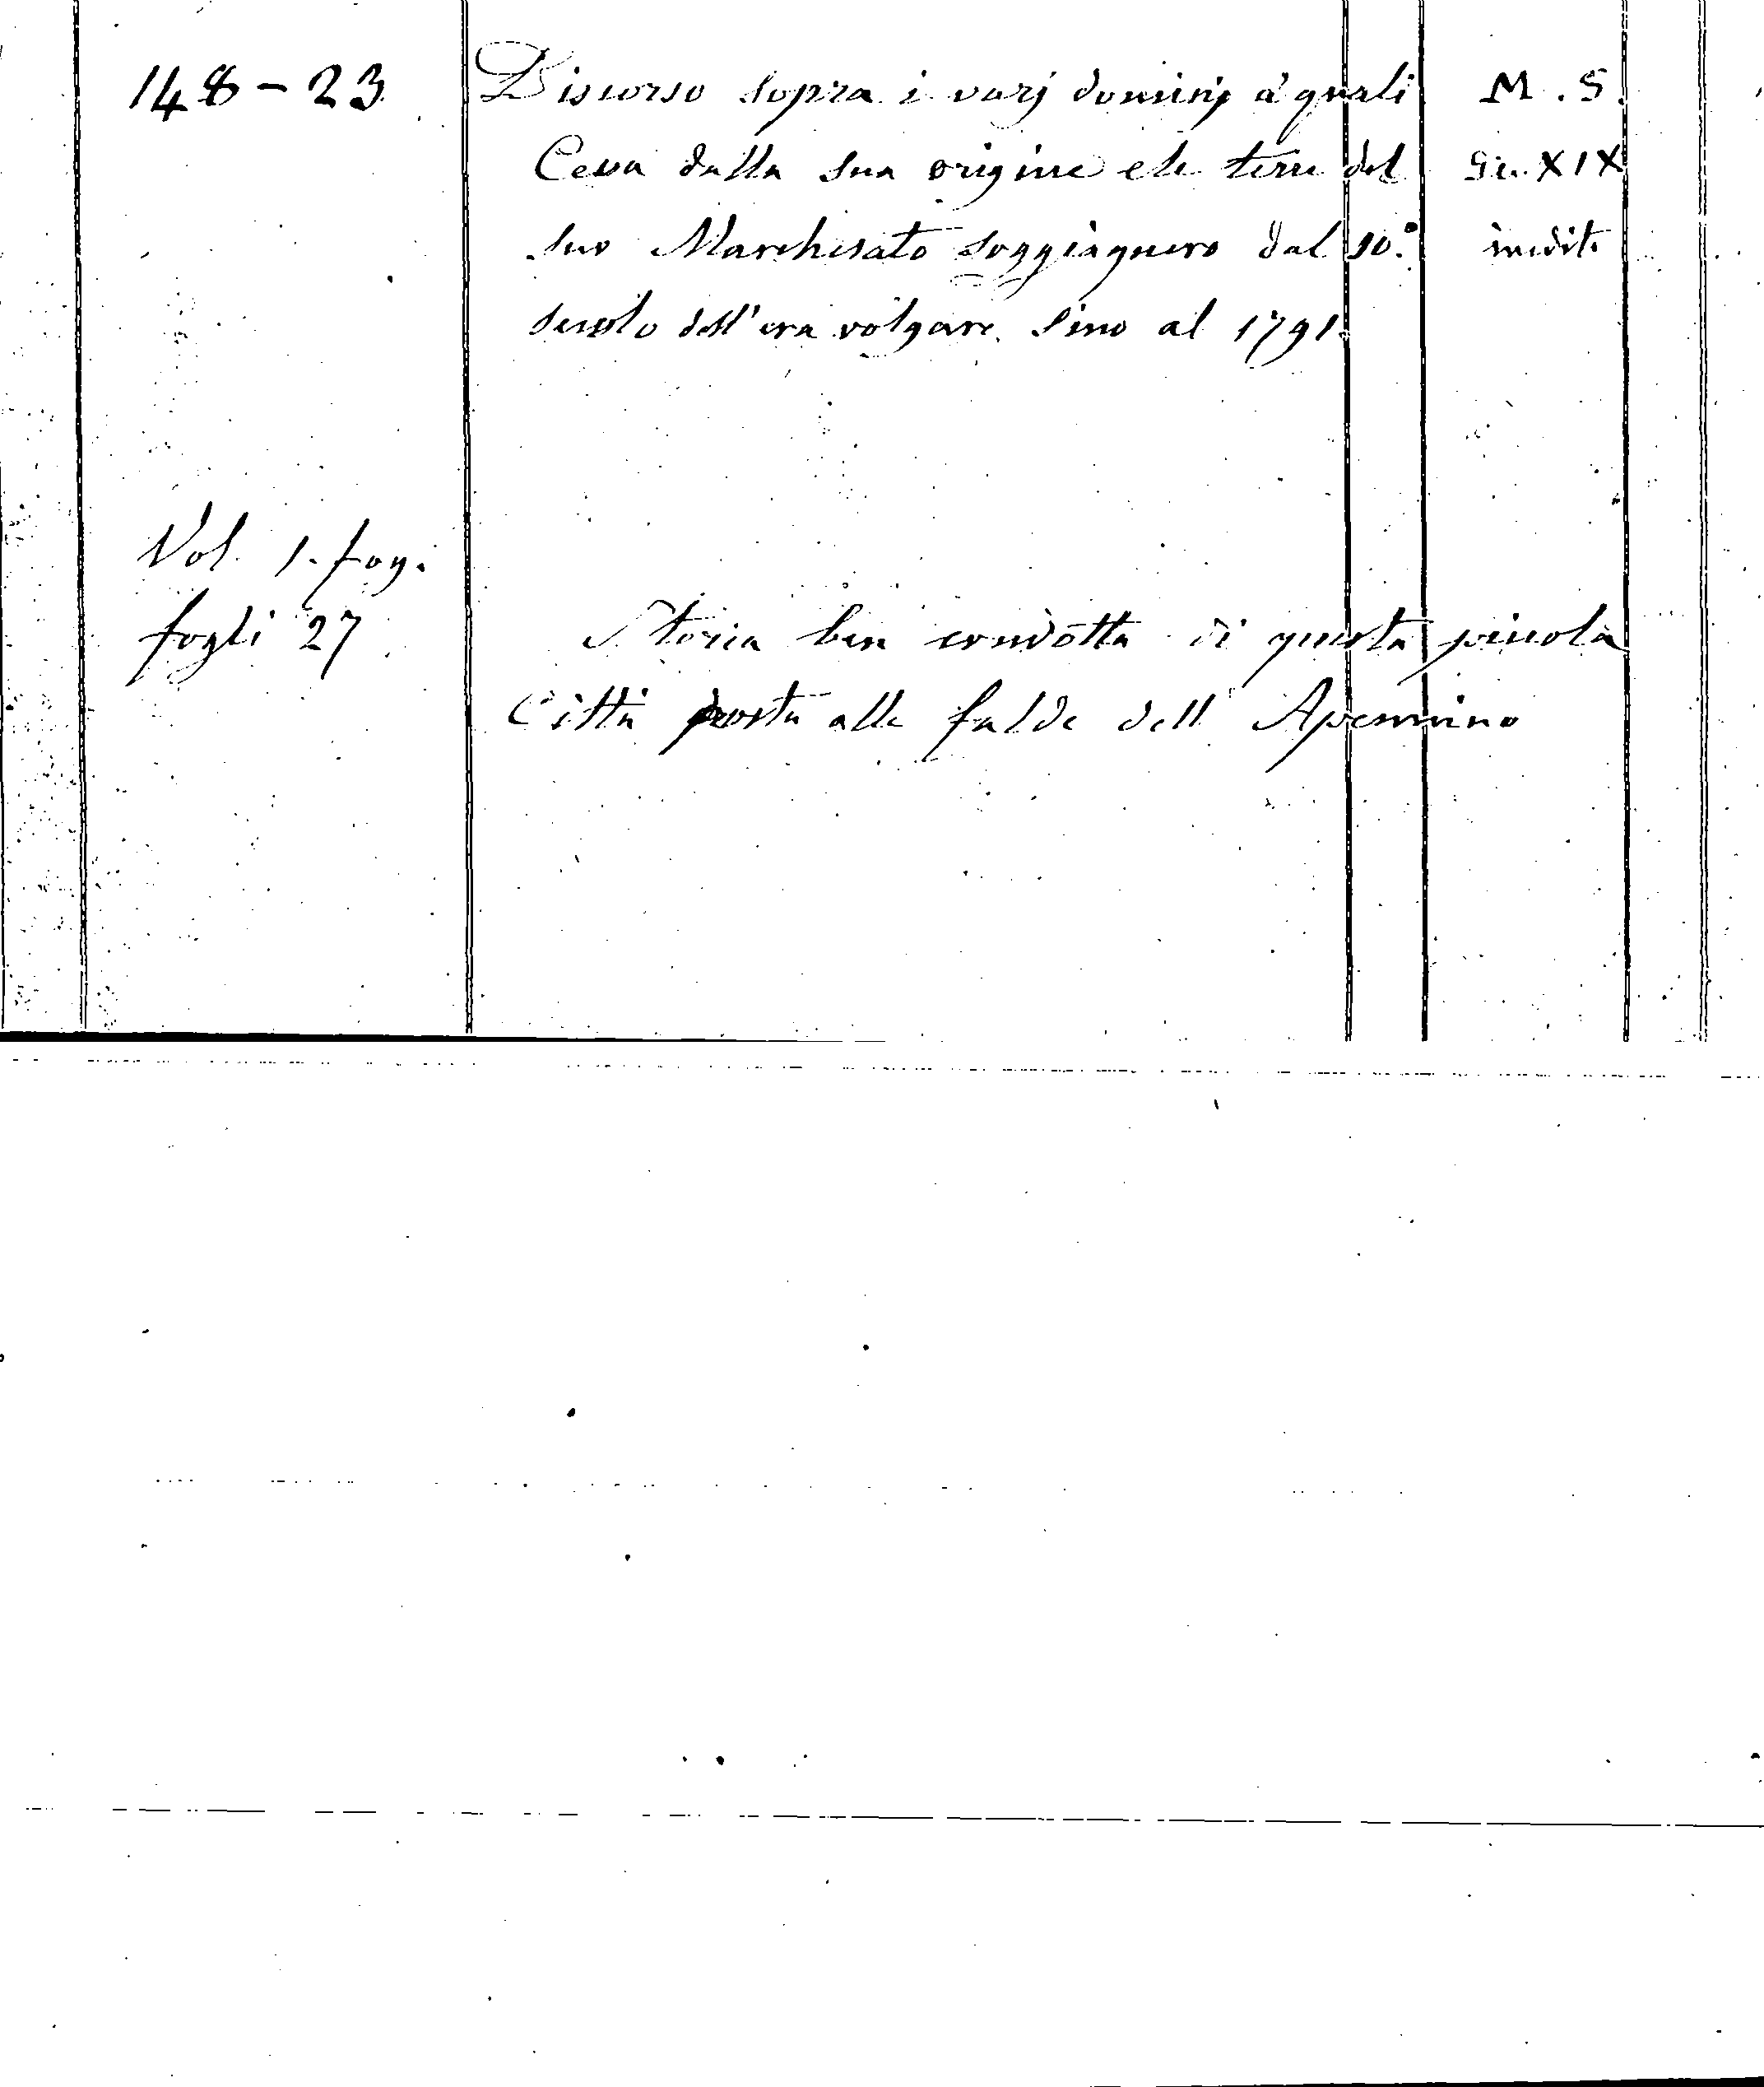 148 - 23
Discorso sopra i varj dominj a' quali
Ceva dalla sua origine e le terre del
suo Marchesato soggiaquero dal 10.°
secolo dell'era volgare sino al 1791.
M. S.
Sec. XIX
inedito
Vol. 1. fog.
fogli 27
Storia ben condotta di questa piccola
Città posta alle falde dell' Apennino